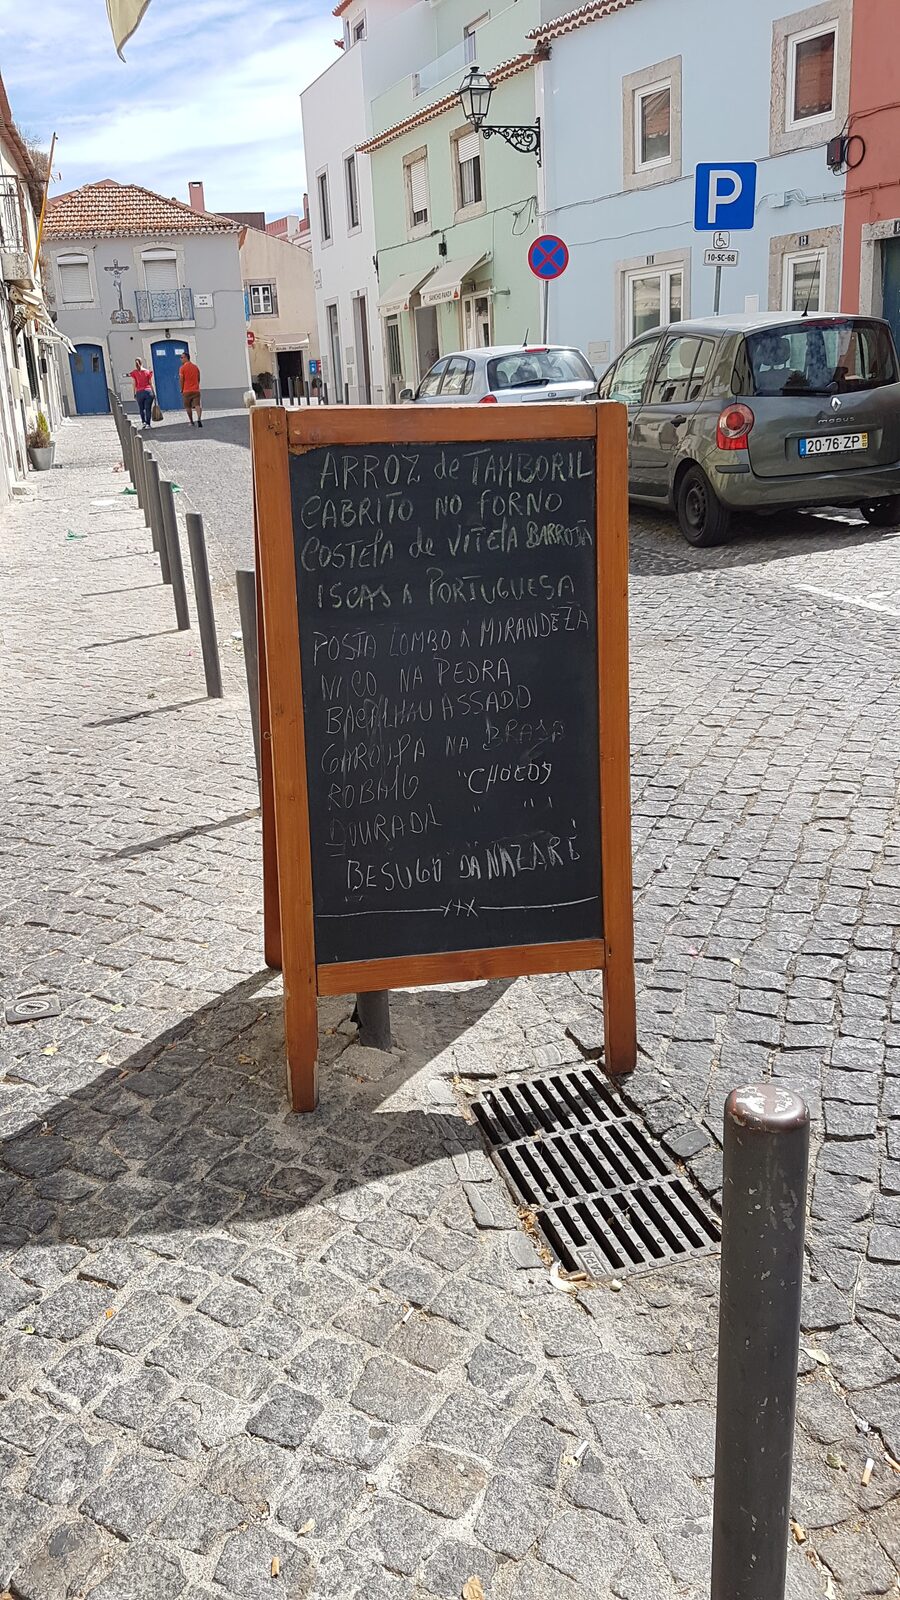 P
10-SC-68
SANCHO PANZA
20-76-ZP
ARROZ de TAMBORIL
CABRITO NO FORNO
COSTELA de VITELA BARROSÃ
ISCAS À PORTUGUESA
POSTA LOMBO À MIRANDEZA
NACO NA PEDRA
BACALHAU ASSADO
GAROUPA NA BRASA
ROBALO " CHOCOS
DOURADA " " "
BESUGO DA NAZARÉ
XXX